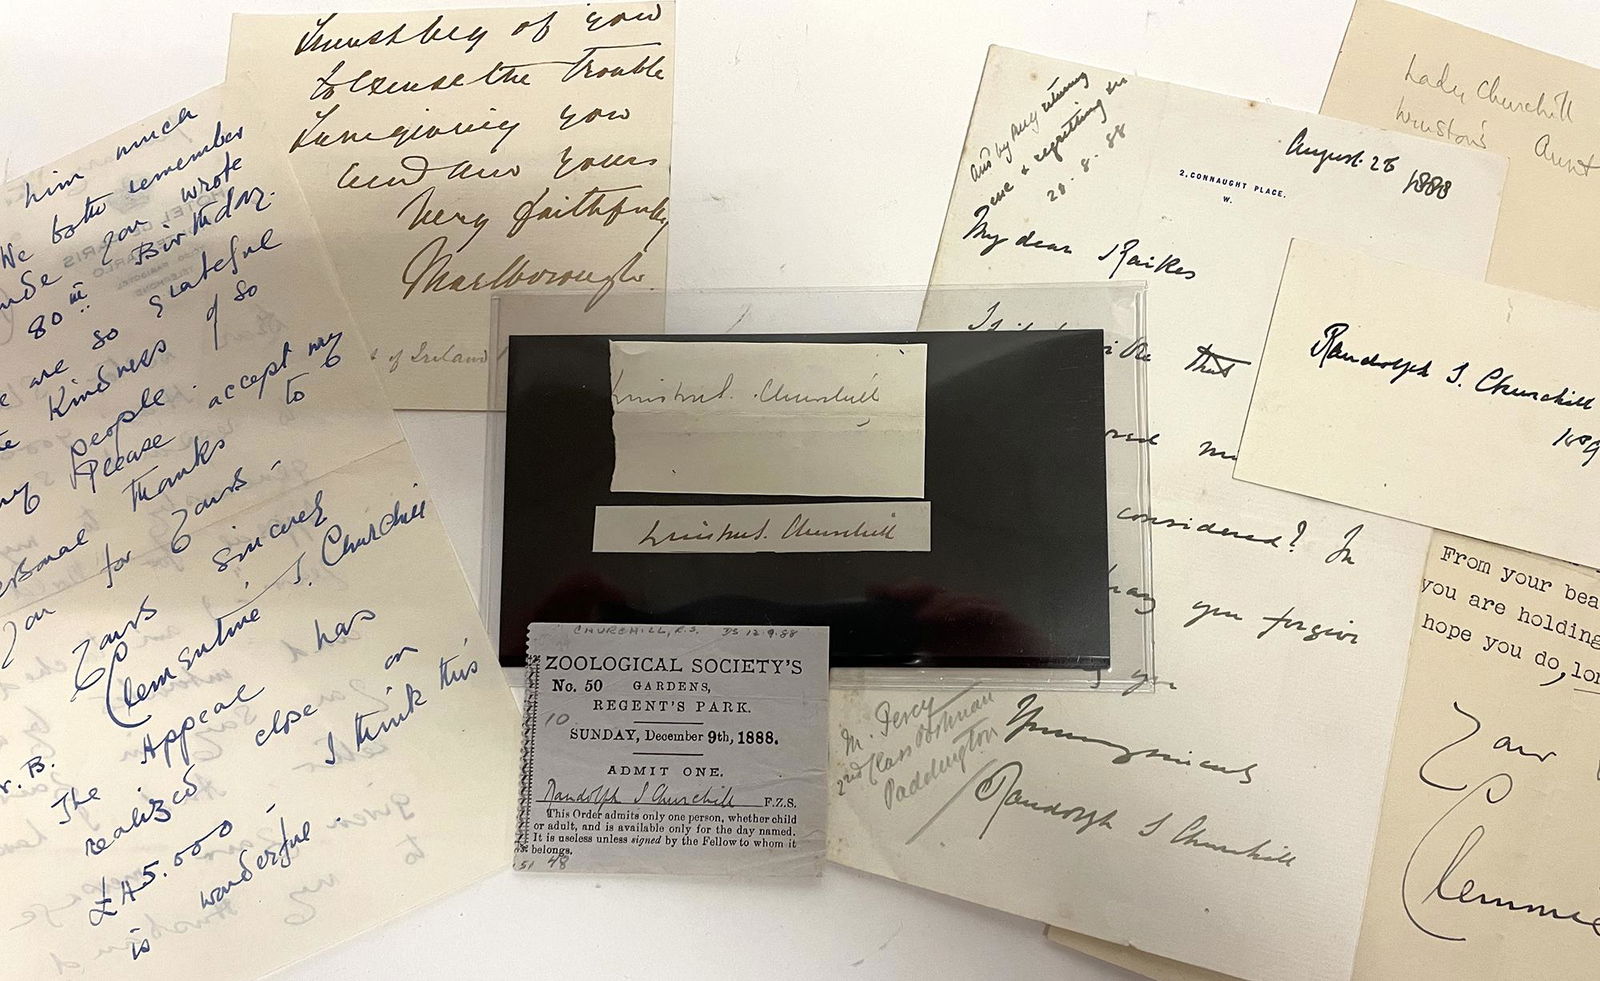 him much
We both remember
you wrote
80th Birthday.
are so grateful
Kindness of so
people.
Please accept my
thanks to
you for yours
Yours sincerely
Clementine S. Churchill
The Appeal has
realized close on
£45.000 - I think this
is wonderful.
I must beg of you
to excuse the trouble
I am giving you
and am yours
very faithfully
Marlborough.
of Ireland
Winston S. Churchill
Winston S. Churchill
CHURCHILL, R.S. DS 12.9.88
ZOOLOGICAL SOCIETY'S
No. 50 GARDENS,
REGENT'S PARK.
10.
SUNDAY, December 9th, 1888.
ADMIT ONE.
Randolph S Churchill F.Z.S.
This Order admits only one person, whether child
or adult, and is available only for the day named.
It is useless unless signed by the Fellow to whom it
belongs.
51 48
& regretting
20.8.88
August. 26 1888
2, CONNAUGHT PLACE.
W.
My dear Raikes
that
considered? In
you forgive
you
Yours sincerely
Randolph S Churchill
M. Percy
2nd Class Postman
Paddington
Lady Churchill
Winston's Aunt
Randolph S. Churchill
189
From your bea
you are holding
hope you do, lo
Your
Clemmie